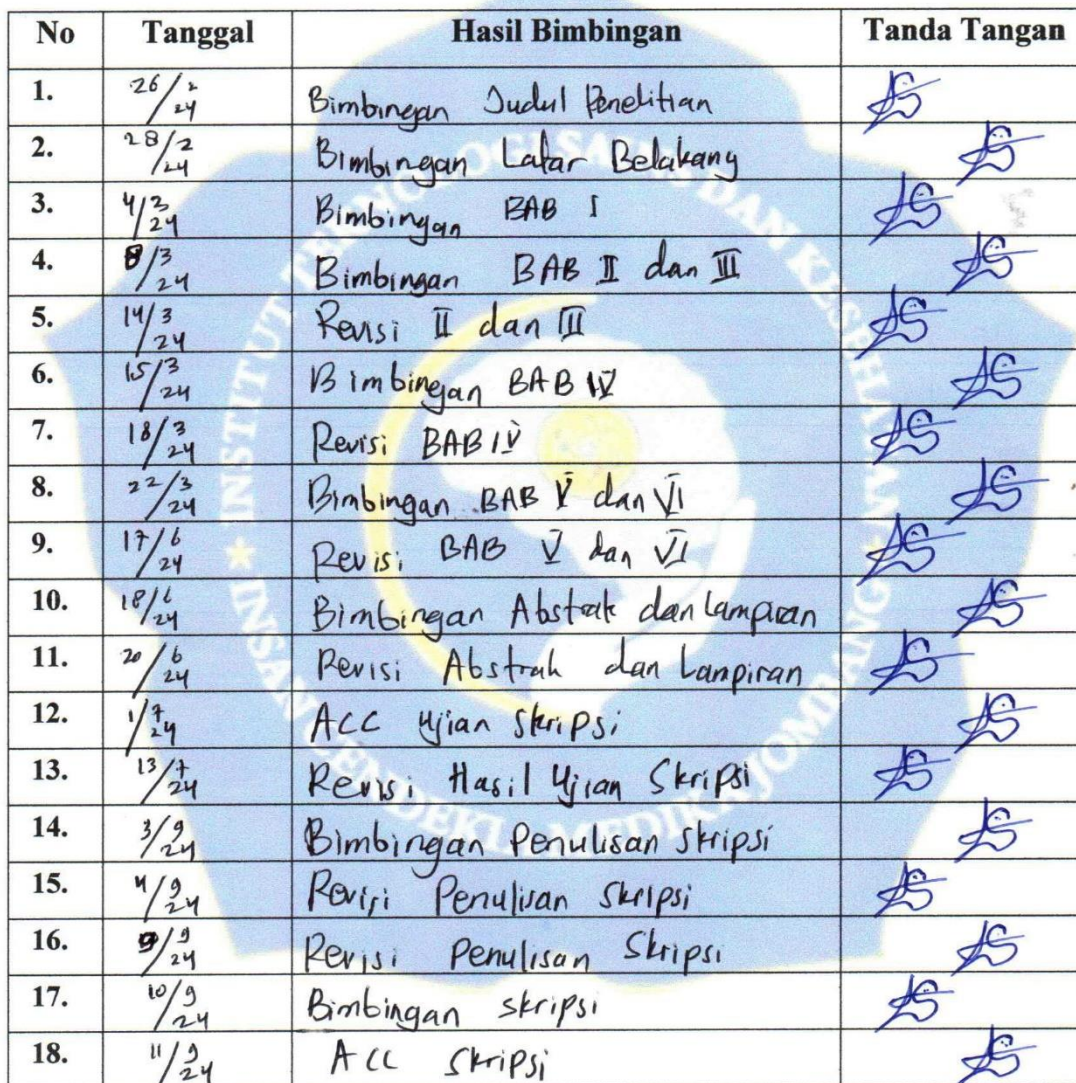 No Tanggal Hasil Bimbingan Tanda Tangan
1. 26/2 24 Bimbingan Judul Penelitian
2. 28/2 24 Bimbingan Latar Belakang
3. 4/3 24 Bimbingan BAB I
4. 8/3 24 Bimbingan BAB II dan III
5. 14/3 24 Revisi II dan III
6. 15/3 24 Bimbingan BAB IV
7. 18/3 24 Revisi BAB IV
8. 22/3 24 Bimbingan BAB V dan VI
9. 17/6 24 Revisi BAB V dan VI
10. 18/6 24 Bimbingan Abstrak dan Lampiran
11. 20/6 24 Revisi Abstrak dan Lampiran
12. 1/7 24 ACC Ujian Skripsi
13. 13/7 24 Revisi Hasil Ujian Skripsi
14. 3/9 24 Bimbingan Penulisan Skripsi
15. 4/9 24 Revisi Penulisan Skripsi
16. 9/9 24 Revisi Penulisan Skripsi
17. 10/9 24 Bimbingan skripsi
18. 11/9 24 ACC Skripsi
INSTITUT TEKNOLOGI SAINS DAN KESEHATAN
INSAN CENDEKIA MEDIKA JOMBANG